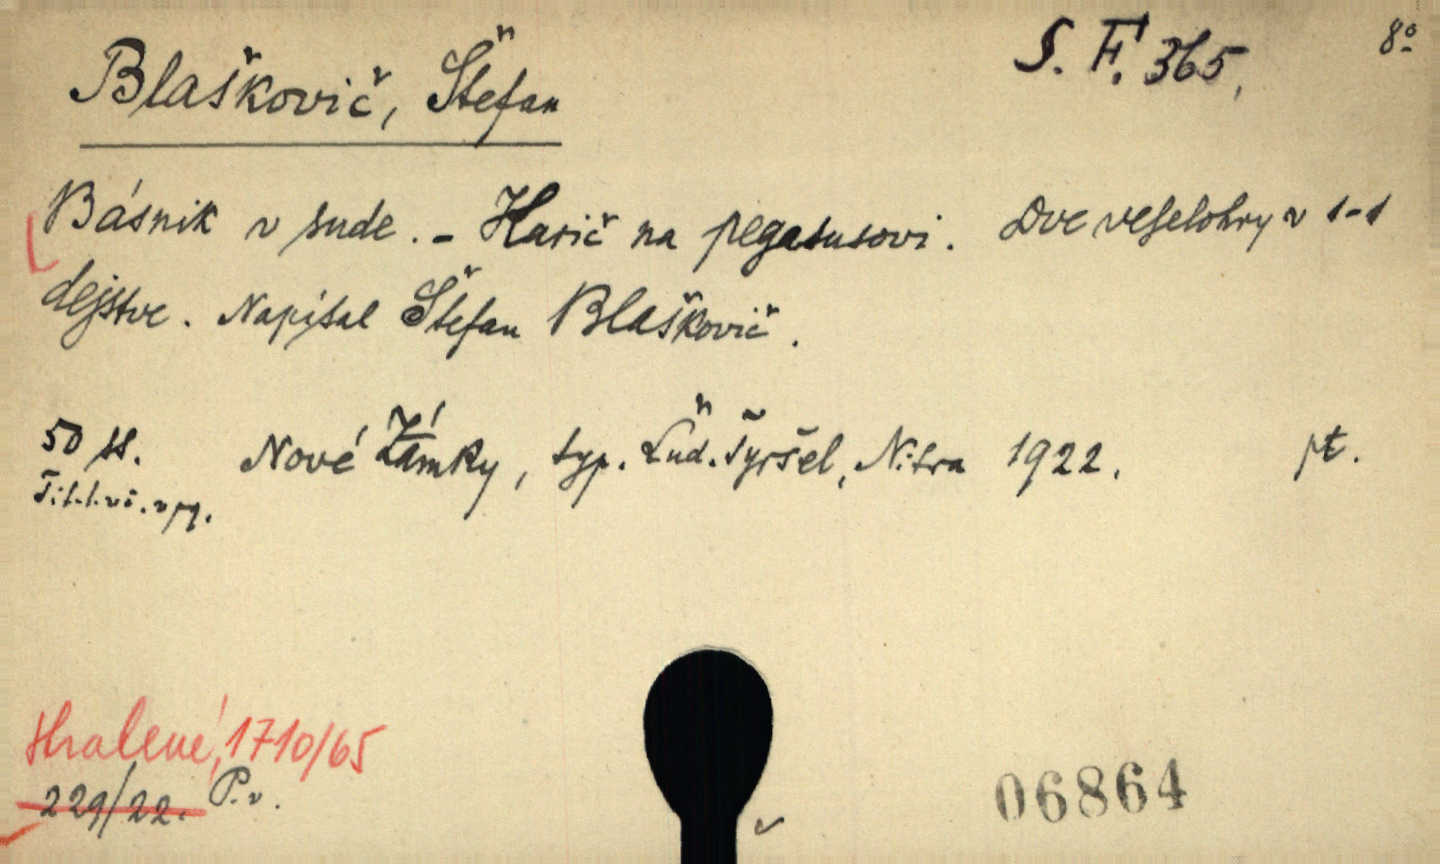 Blaškovič, Štefan
S. F. 365,
8º
Básnik v sude. - Hasič na pegasusovi. Dve veselohry v 1-1
dejstve. Napísal Štefan Blaškovič.
50 ss. Nové Zámky, typ. Ľud. Šyršel, Nitra 1922. pt.
Tit. l. vč. v pg.
Hralené, 1710/65
229/22. P.v.
06864